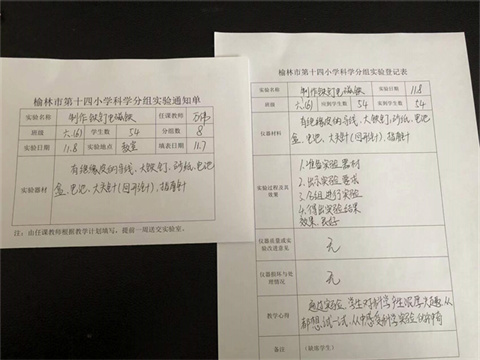 榆林市第十四小学科学分组实验通知单
实验名称 制作铁钉电磁铁 任课教师
班级 六(6) 学生数 54 分组数 8
实验日期 11.8 实验地点 教室 填表日期 11.7
实验器材 有绝缘皮的导线、大铁钉、砂纸、电池
盒、电池、大头针(回形针)、指南针
注：由任课教师根据教学计划填写，提前一周送交实验室。
榆林市第十四小学科学分组实验登记表
实验名称 制作铁钉电磁铁 实验日期 11.8
班级 六(6) 应到学生数 54 实到学生数 54
仪器材料 有绝缘皮的导线、大铁钉、砂纸、电池
盒、电池、大头针(回形针)、指南针
实验过程及其
效果
1. 准备实验器材
2. 出示实验要求
3. 各组进行实验
4. 得出实验结果
效果：良好
仪器质量或实
验改进意见 无
仪器损坏与处
理情况 无
教学心得 通过实验，学生对科学产生浓厚兴趣，人人
都想试一试，从中感受科学实验
备注 （缺席学生）